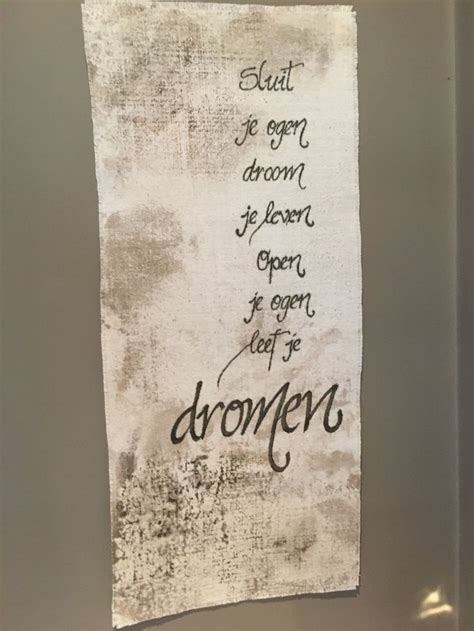 Sluit
je ogen
droom
je leven
Open
je ogen
leef je
dromen